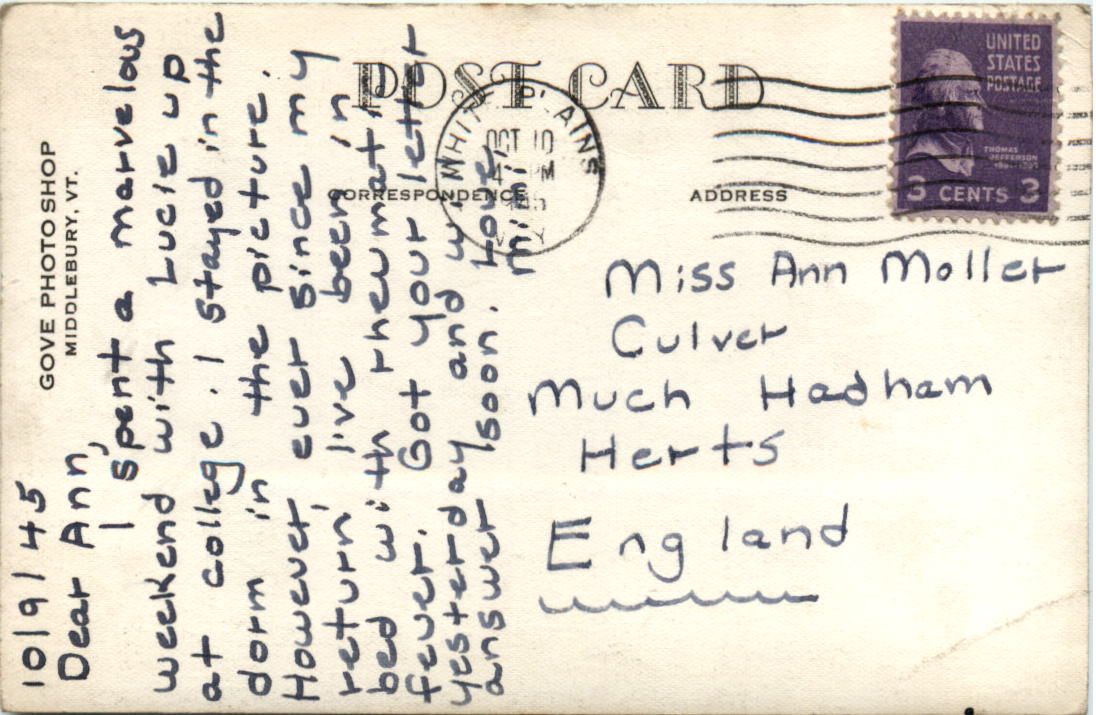 POST CARD
CORRESPONDENCE
ADDRESS
GOVE PHOTO SHOP
MIDDLEBURY, VT.
10/9/45
Dear Ann,
I spent a marvelous
weekend with Lucie up
at college. I stayed in the
dorm in the picture.
However, ever since my
return, I've been in
bed with rheumatic
fever. Got your letter
yesterday and will
answer soon. Love,
Mimi
WHITE PLAINS
OCT 10
4 PM
N.Y.
UNITED
STATES
POSTAGE
THOMAS
JEFFERSON
3 CENTS 3
Miss Ann Moller
Culver
Much Hadham
Herts
England